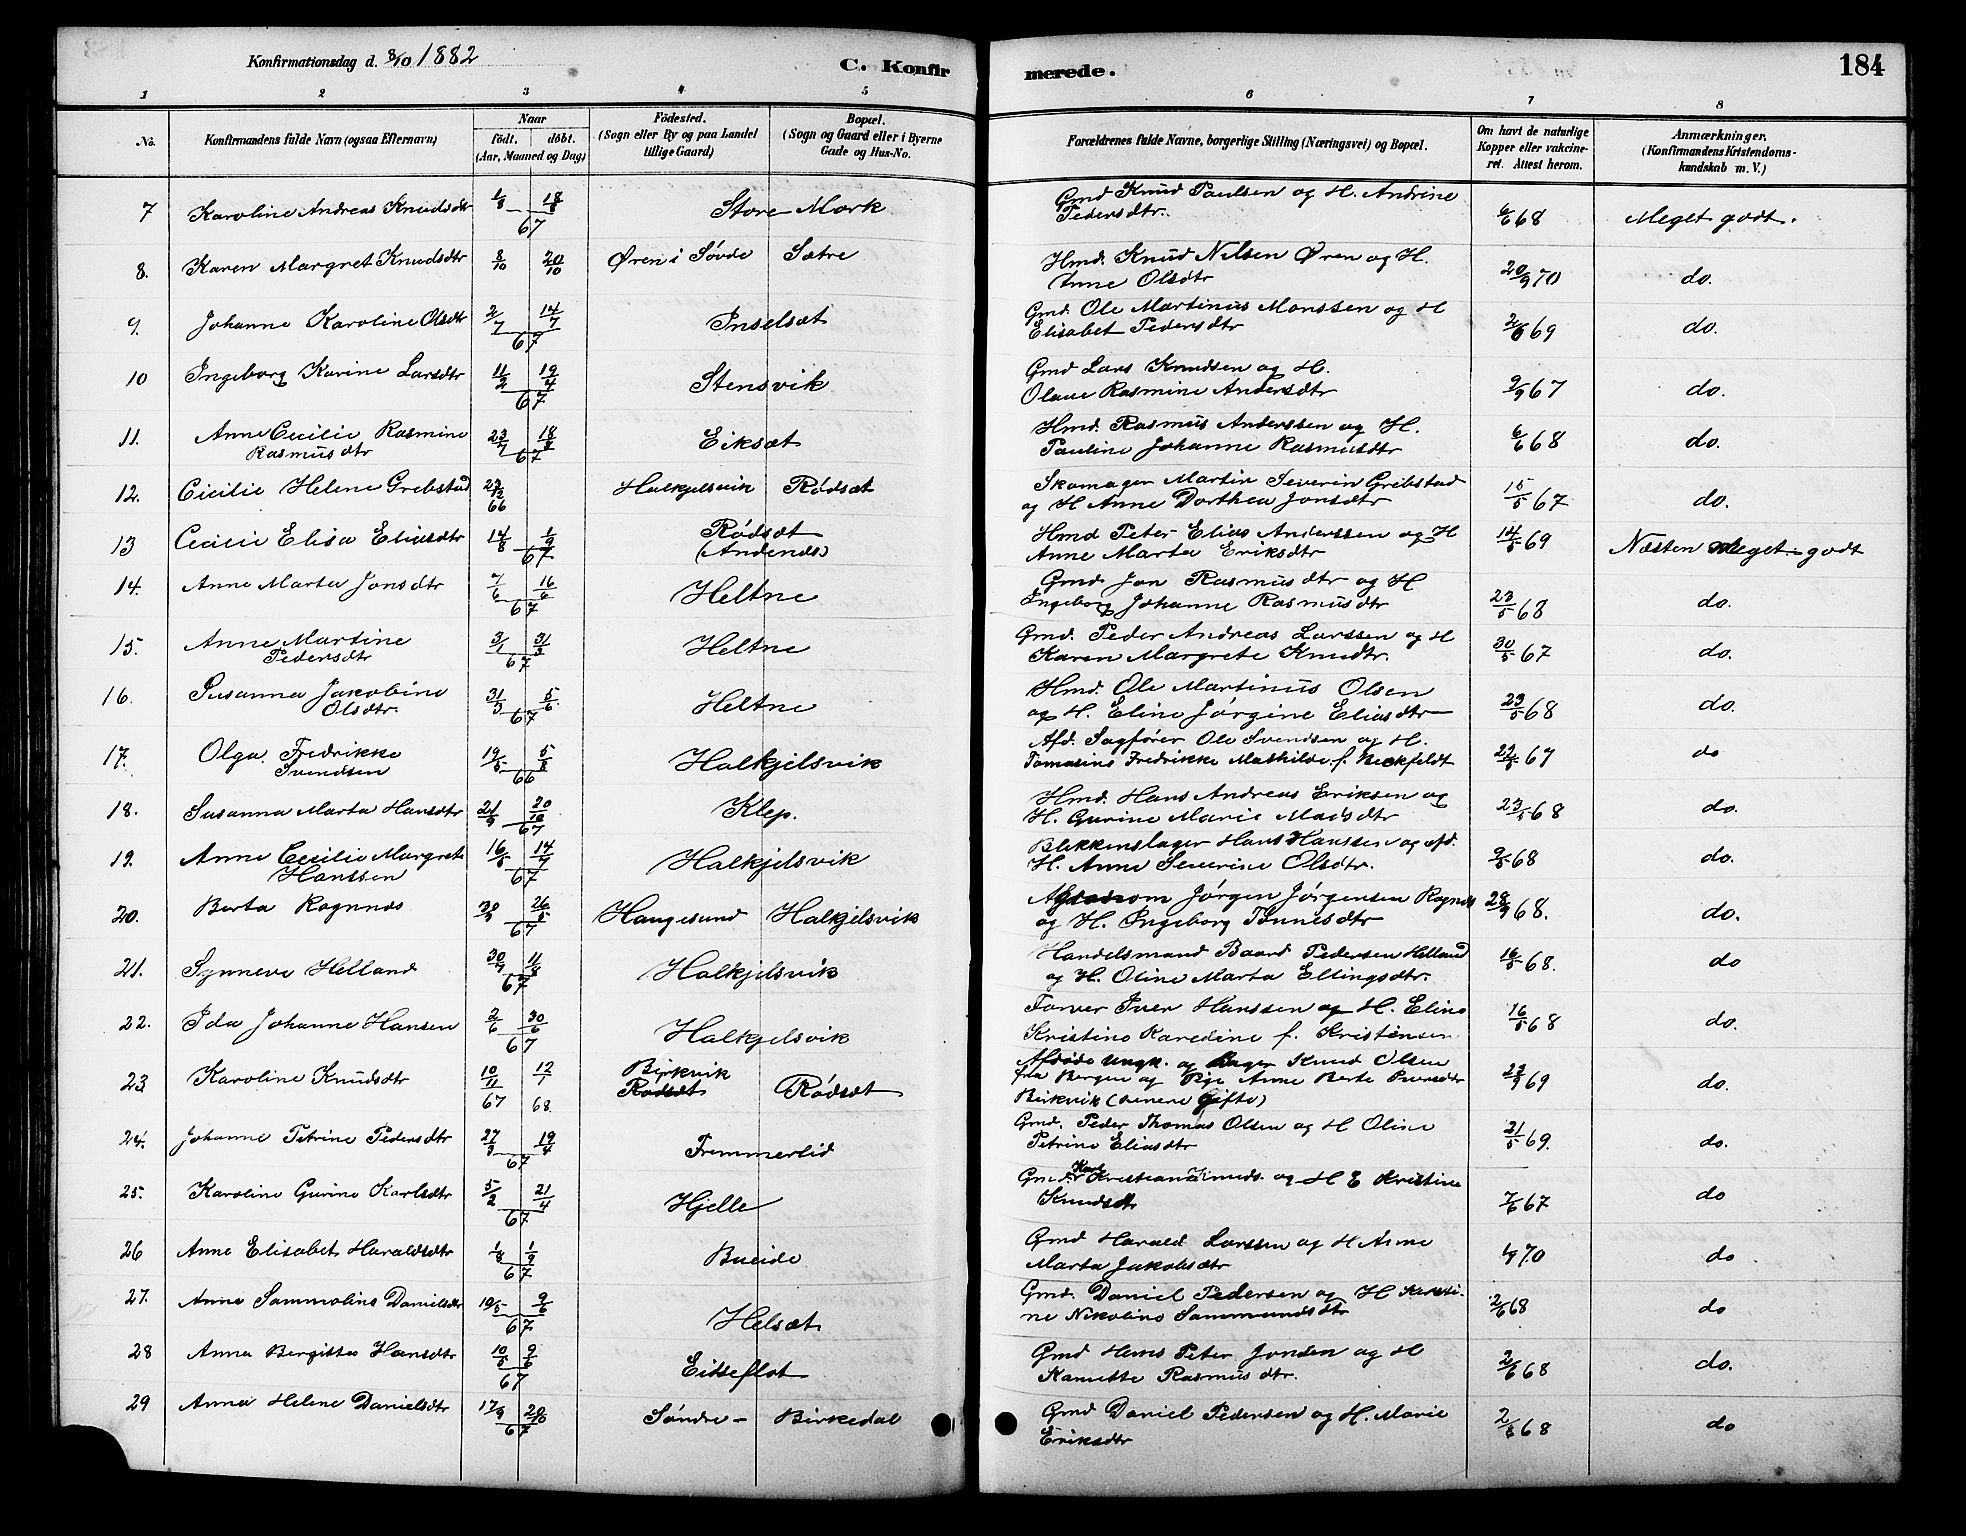 Konfirmationsdag d. 8/10 1882
C. Konfir
merede.
184
1 2 3 4 5 6 7 8
No.
Konfirmandens fulde Navn (ogsaa Efternavn)
Naar
født. døbt.
(Aar, Maaned og Dag)
Fødested.
(Sogn eller By og paa Landet
tillige Gaard)
Bopæl.
(Sogn og Gaard eller i Byerne
Gade og Hus-No.
Forældrenes fulde Navne, borgerlige Stilling (Næringsvei) og Bopæl.
Om havt de naturlige
Kopper eller vakcine-
ret. Attest herom.
Anmærkninger.
(Konfirmandens Kristendoms-
kundskab m. V.)
7 Karoline Andreas Knudsdtr 1/8 18/8 67 Store Mork Gmd Knud Paulsen og H. Andrine
Pedersdtr. 6/6 68 Meget godt.
8. Karen Margret Knudsdtr 8/10 20/10 Øren i Søvde Sætre Hmd. Knud Nilsen Øren og H.
Anne Olsdtr 20/9 70 do.
9. Johanne Karoline Olsdtr 2/7 14/7 67 Inselsæt Gmd. Ole Martinus Monssen og H
Elisabet Pedersdtr 2/6 69 do.
10 Ingeborg Karine Larsdtr 11/2 19/4 67 Stensvik Gmd Lars Knudsen og H.
Olave Rasmine Andersdtr 9/9 67 do.
11. Anne Cecilie Rasmine
Rasmusdtr 23/7 18/8 67 Eiksæt Hmd. Rasmus Anderssen og H.
Pauline Johanne Rasmusdtr 6/6 68 do.
12. Cicilie Helene Grebstad 23/12 66 Halkjelsvik Rødsæt Skomager Martin Severin Grebstad
og H Anne Dorthea Jonsdtr 15/5 67 do.
13 Cecilie Elisa Eliasdtr 14/8 1/9 67 Rødsæt
(Andenæs) Hmd Peter Elias Anderssen og H
Anne Marta Eriksdtr 14/5 69 Næsten Meget godt
14. Anne Marta Jonsdtr 7/6 16/6 67 Heltne Gmd. Jon Rasmusdtr og H
Ingeborg Johanne Rasmusdtr 23/5 68 do.
15. Anne Martine
Pedersdtr 3/1 31/3 67 Heltne Gmd. Peder Andreas Larssen og H
Karen Margrete Knudtr. 30/5 67 do.
16. Susanna Jakobine
Olsdtr. 31/3 5/6 67 Heltne Hmd. Ole Martinus Olsen
og H. Eline Jørgine Eliasdtr 23/5 68 do.
17. Olga Fredrikke
Svendsen 19/5 5/8 66 Halkjelsvik Afd. Sagfører Ole Svendsen og H.
Tomasine Fredrikke Mathilde f. 22/5 67 do
18. Susanna Marta Hansdtr 21/9 20/10 67 Klep. Hmd. Hans Andreas Eriksen og
H. Gurine Marie Madsdtr 23/5 68 do.
19. Anne Cecilie Margrete
Hanssen 16/5 14/7 67 Halkjelsvik Blekkenslager Hans Hanssen og afd.
H. Anne Severine Olsdtr. 9/5 68 do.
20. Berta Ragnnæs 30/3 26/5 67 Haugesund Halkjelsvik Jørgen Jørgensen Ragnæs
og H. Ingeborg Tønnesdtr 28/9 68. do.
21. Synneve Helland 30/7 11/8 67 Halkjelsvik Handelsmand Baard Pedersen Helland
og H. Oline Marta Ellingsdtr. 16/5 68. do
22. Ida Johanne Hansen 2/6 30/6 67 Halkjelsvik Farver Iver Hanssen og H. Eline
Kristine Karedine f. Kristensen 16/5 68 do.
23 Karoline Knudsdtr 10/11 67 12/1 68 Birkvik
Rødsæt Rødsæt Afdøde Ungk. og Knud Olsen
fra Bergen og Pige Anne Berte Iversdtr
Birkvik (senere Gifte) 23/9 69 do.
24. Johanne Petrine Pedersdtr 27/3 19/4 67 Fremmerlid Gmd. Peder Thomas Olsen og H Oline
Petrine Eliasdtr 21/5 69. do.
25. Karoline Gurine Karlsdtr 5/2 21/4 67 Hjelle Gmd. Karl Kristian Knuds. og H E Kristine
Knudsdtr 7/6 67 do
26 Anne Elisabet Haraldsdtr 1/8 1/9 67 Bueide Gmd Harald Larssen og H Anne
Marta Jakobsdtr 70 do
27. Anne Sammoline Danielsdtr 19/5 9/6 67 Helsæt Gmd. Daniel Pedersen og H Karsti-
ne Nikoline Sammundsdtr 2/6 68 do
28 Anna Bergitte Hansdtr 10/5 9/6 67 Eitreflot Gmd Hans Peter Jonsen og H
Hanette Rasmusdtr. 2/6 68 do.
29 Anna Helene Danielsdtr 17/9 20/10 67 Søndre- Birkedal Gmd Daniel Pedersen og H. Marie
Eriksdtr 2/6 68 do